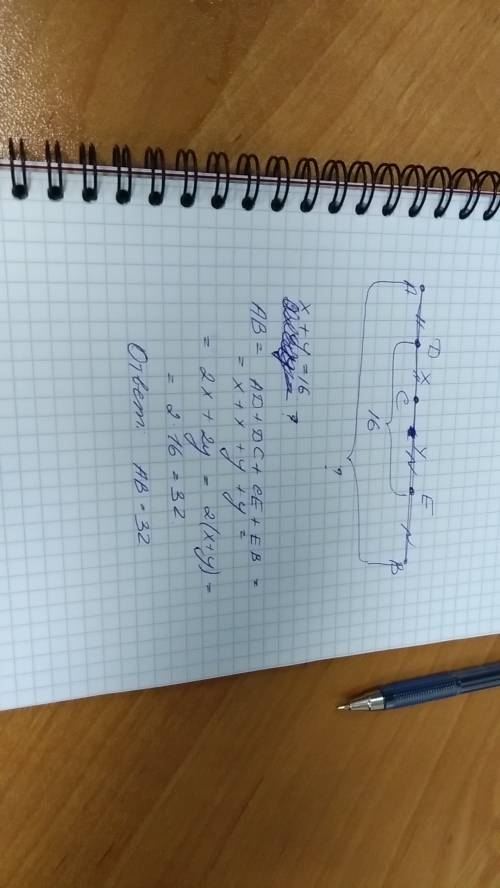 A D X C Y E B
16
?
x + y = 16
?
AB = AD + DC + CE + EB =
= x + x + y + y =
= 2x + 2y = 2(x+y) =
= 2 16 = 32
Ответ AB = 32